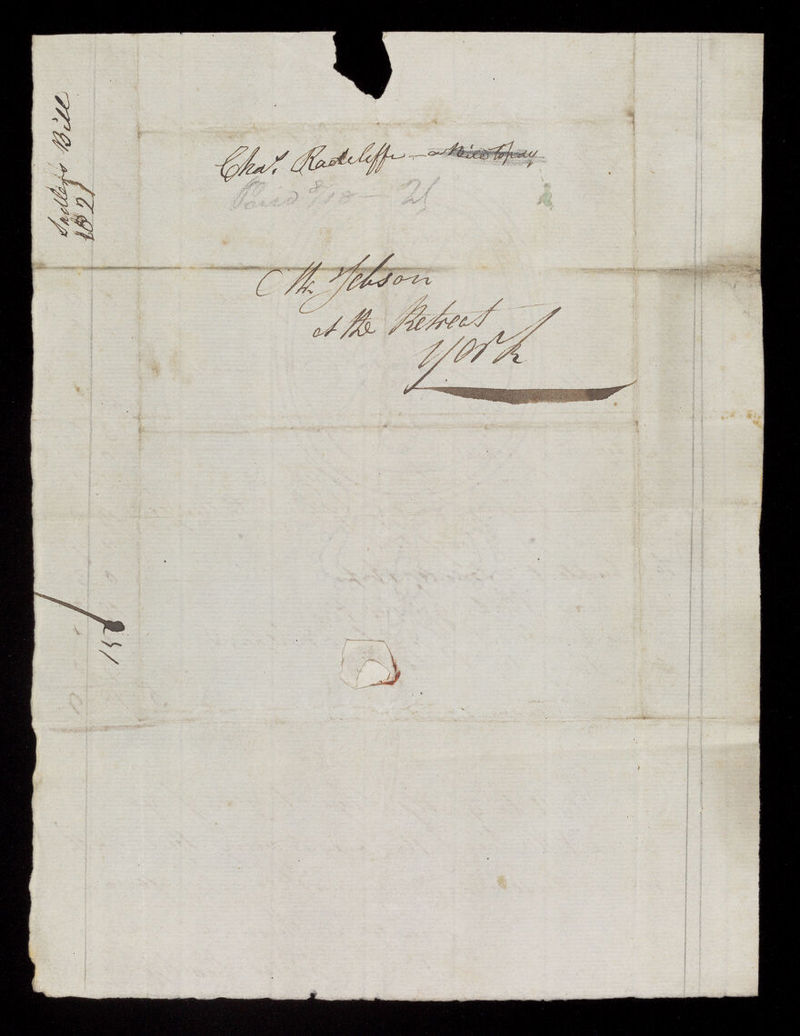 Sadler's Bill
1821
Chas. Radcliffe — a Bill to pay
Paid 8/10 — 21
Mr. Jebson
at the Retreat
York